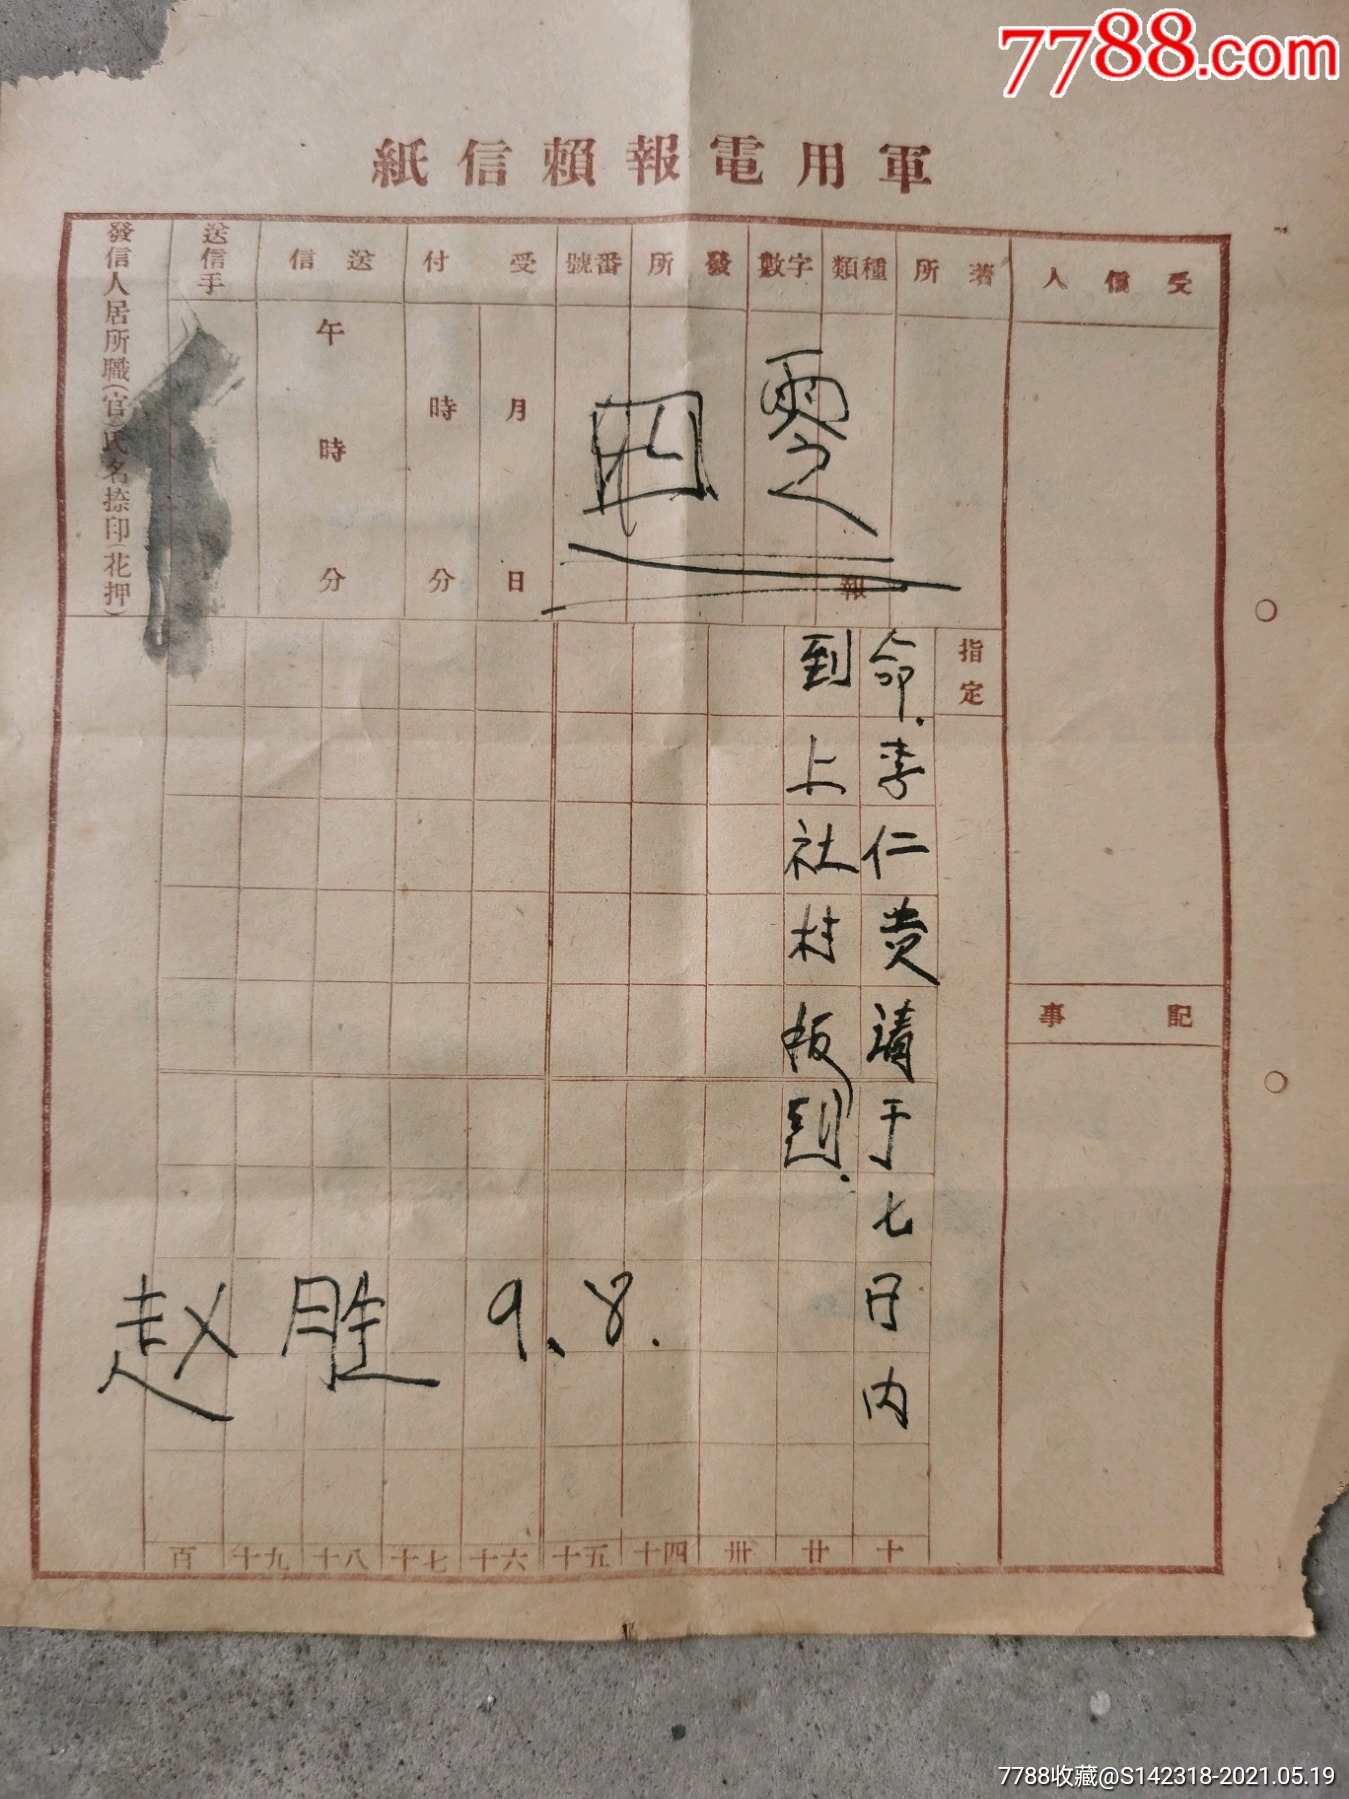 7788.com
軍用電報賴信紙
受信人
著所
種類
字數
發所
番號
受付
送信
送信手
發信人居所職(官)氏名捺印(花押)
報
月日
時分
午時分
指定
記事
命.李仁贵请于七日内
到上社村报到.
赵胜 9.8.
十
廿
卅
四十
五十
六十
七十
八十
九十
百
7788收藏@S142318-2021.05.19